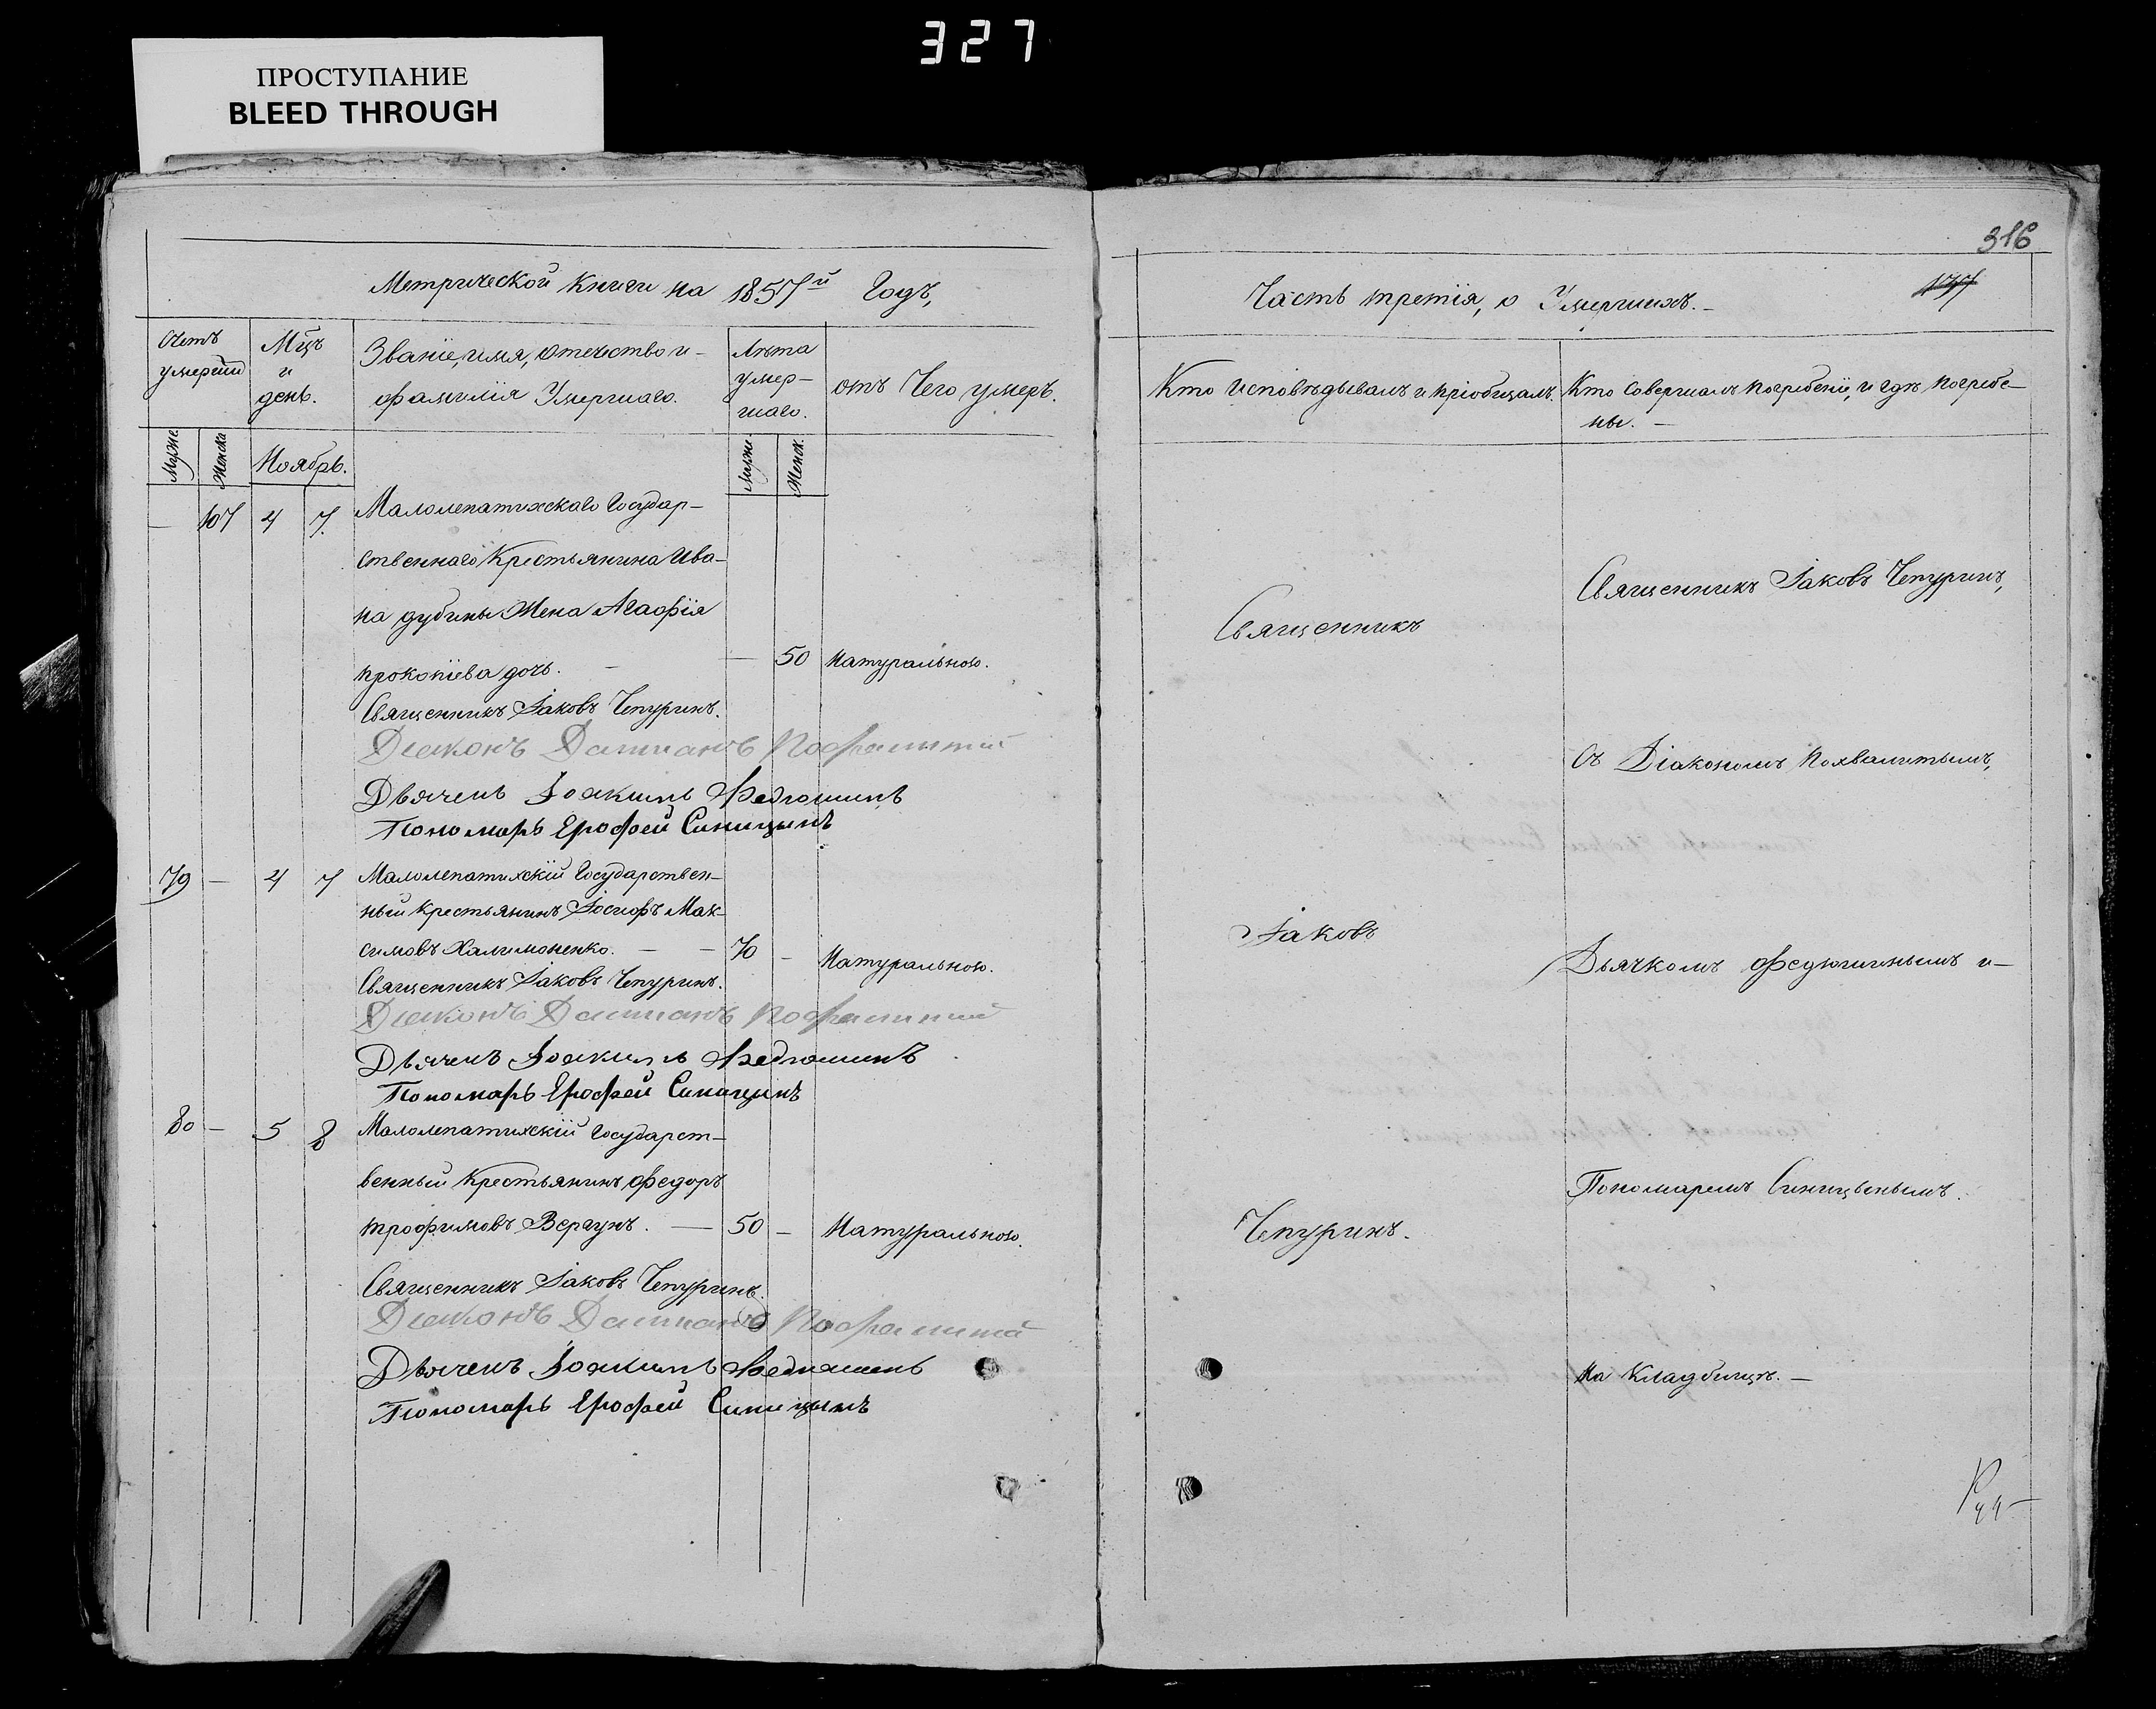 327
ПРОСТУПАНИЕ
BLEED THROUGH
Метрической Книги на 1857й Годъ,
Счетъ умерши
Мцъ и день.
Званіе, имя, отечество и
фамилія Умершаго.
Лѣта умер-
шаго.
отъ Чего умеръ.
Муже
Женска
Ноябрь.
Муже
Женск.
— 107 4 7. Малолепатихскаго Государ-
ственнаго Крестьянина Ива-
на дубины Жена Агафія
прокопіева дочь. — — 50 Натуральною.
Священникъ Іаковъ Чепуринъ.
Діаконъ Даміанъ Похвалитый
Дьячекъ Іоакимъ Федюшинъ
Пономарь Ерофей Синицынъ
79 — 4 7 Малолепатихскій Государствен-
ный крестьянинъ Іосифъ Мак-
симовъ Халимоненко. — — 70 — Натуральною.
Священникъ Іаковъ Чепуринъ.
Діаконъ Даміанъ Похвалитый
Дьячекъ Іоакимъ Федюшинъ
Пономарь Ерофей Синицынъ
80 — 5 8 Малолепатихскій Государст-
венный Крестьянинъ Федоръ
трофимовъ Вергунъ. — 50 — Натуральною.
Священникъ Іаковъ Чепуринъ.
Діаконъ Даміанъ Похвалитый
Дьячекъ Іоакимъ Федюшинъ
Пономарь Ерофей Синицынъ
316
Часть третія, о Умершихъ. —
Кто Исповѣдывалъ и пріобщалъ.
Кто Совершалъ погребеніе, и гдѣ погребе-
ны. —
Священникъ
Іаковъ
Чепуринъ.
Священникъ Іаковъ Чепуринъ,
Съ Діакономъ Похвалитымъ,
Дьячкомъ Федюшинымъ и —
Пономаремъ Синицынымъ.
На Кладбищѣ. —